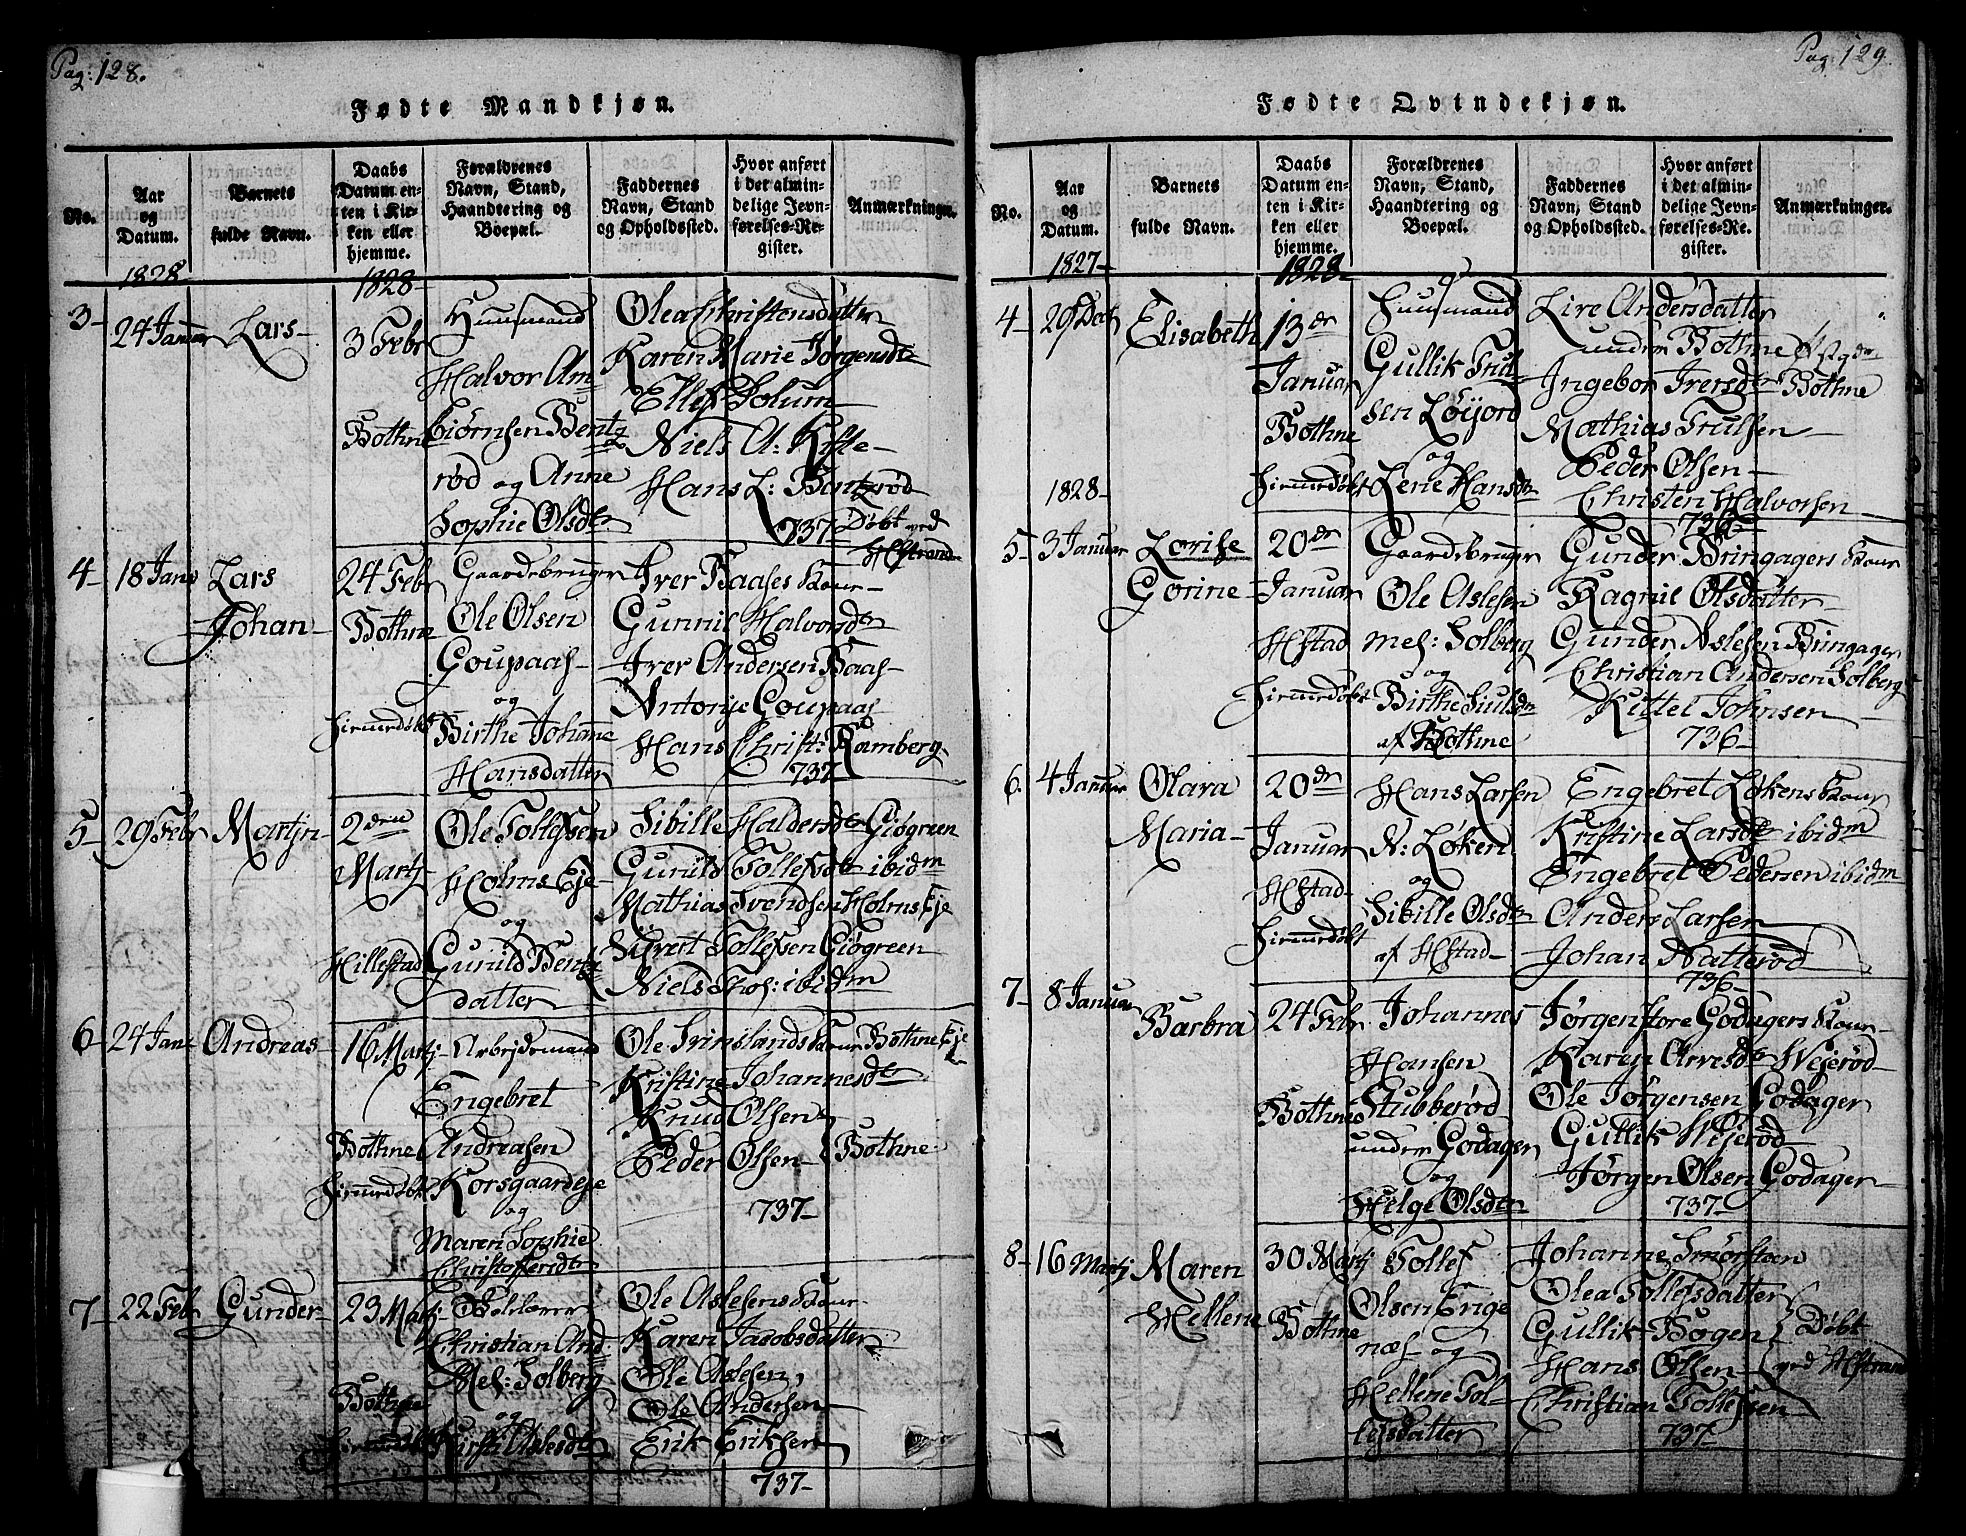 Pag: 128.
Fødte Mandkjøn.
No.
Aar og Datum.
Barnets fulde Navn.
Daabs Datum enten i Kirken eller hjemme.
Forældrenes Navn, Stand, Haandtering og Boepæl.
Faddernes Navn, Stand og Opholdssted.
Hvor anført i det almindelige Jevnførelses-Register.
Anmærkninger.
1828
1828-
3-
24 Januar
Lars-
3 Febr
Bothne
Huusmand
Halvor Am=
biørnsen Bentz
rød og Anne
Sophie Olsdtr
Olea Christensdatter
Karen Marie Jørgensdtr
Ellef Solum-
Niels A:
Hans L: Bentzrød
737-
Døbt ved
4-
18 Janr
Lars
Johan-
24 Febr
Bothne
Hiemmedøbt
Gaardsbruger
Ole Olsen
Goupaas-
og
Birthe Johanne
Hansdatter
Iver Baases Kone-
Gunnil Halvorsdtr
Iver Andersen Baas-
Antonye Goupaas
Hans Christ: Ramberg-
737-
5-
29 Febr
Martjn-
2den
Martj-
Hillestad
Ole Tollefsen
Holms Eje-
og
Gunild Bentz
datter
Sibille Haldersdtr Giøgreen
Gunild Tollefsdtr ibidm
Mathias Svendsen Holms Eje
Sivert Tollefsen Giøgreen
Niels Thos: ibidm
6-
24 Jan-
Andreas-
16 Martj-
Bothne
Hiemmedøbt
Arbejdsmand
Engebret
Andreasen
Korsgaardeje
og
Maren Sophie
Christoffersdtr
Ole Svinslands Kone Bothne Eje
Kristine Johannesdtr
Knud Olsen
Peder Olsen-
Bothne
737-
7-
22 Febr
Gunder-
23 Martj-
Bothne
Hiemmedøbt
Christian And
Mel: Solberg
og
Kirsti Aslesdtr
Ole Aslesens Kone-
Karen Jacobsdatter
Ole Aslesen,
Ole Andersen
Erik Eriksen
737-
Pag: 129.
Fødte Qvindekjøn.
No.
Aar og Datum.
Barnets fulde Navn.
Daabs Datum enten i Kirken eller hjemme.
Forældrenes Navn, Stand, Haandtering og Boepæl.
Faddernes Navn, Stand og Opholdssted.
Hvor anført i det almindelige Jevnførelses-Register.
Anmærkninger.
1827-
1828-
4-
29 Dec
Elisabeth
13de
Januar
Bothne
Hiemmedøbt
Huusmand
Gullik Trul=
sen Løyjord
og
Lene Hansdtr
Lire Andersdatter
under Bothne
Ingebor Iversdtr Bothne
Mathias Trulsen-
Peder Olsen-
Christen Halvorsen-
736-
1828-
5-
3 Januar
Lovise
Gorine-
20de
Januar
Hiemmedøbt
Gaardsbruger
Ole Aslesen
mel: Solberg
og
af Bothne
Gunder Bringagers Kone
Ragnil Olsdatter-
Gunder Aslesen Bringager
Christian Andersen Solberg
Kittel Johnsen-
736-
6.
4 Januar
Olava
Maria-
20de
Januar
Hiemmedøbt
Hans Larsen
N: Løken
og
Sibille Olsdtr
Engebret Løkens Kone
Kristine Larsdtr ibidm
Engebret Pedersen ibidm
Anders Larsen
Johan Natterød
736-
7-
8 Januar
Barbra
24 Febr.
Bothne
Johannes
Hansen
Stubberød
under Godager
og
Helge Olsdtr
Jørgen store Godagers Kone-
Karen Arvesdtr Wejerød-
Ole Jørgensen Godager
Gullik Wejerød
Jørgen Olsen Godager
737-
8-
16 Martj
Maren
Hellene
30 Martj
Bothne
Tollef
Olsen Enge
næs og
Hellene Tol=
lefsdatter
Johanne Smørsten
Olea Tollefsdatter
Gullik Bogen
Hans Olsen-
Christian Tollefsen-
Døbt
ved
737-